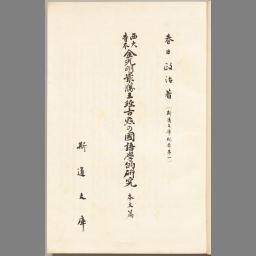 春日政治著(斯道文庫紀要第一)
西大寺本金光明最勝王経古点の國語學的研究 本文篇
斯道文庫